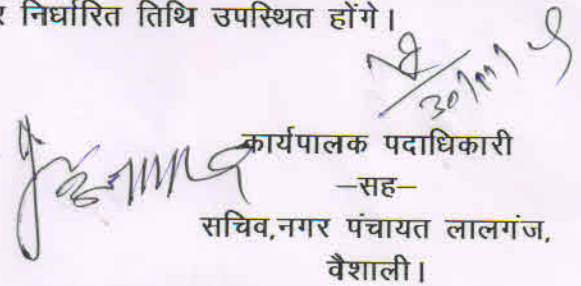 र निर्धारित तिथि उपस्थित होंगे।
कार्यपालक पदाधिकारी
–सह–
सचिव,नगर पंचायत लालगंज,
वैशाली।